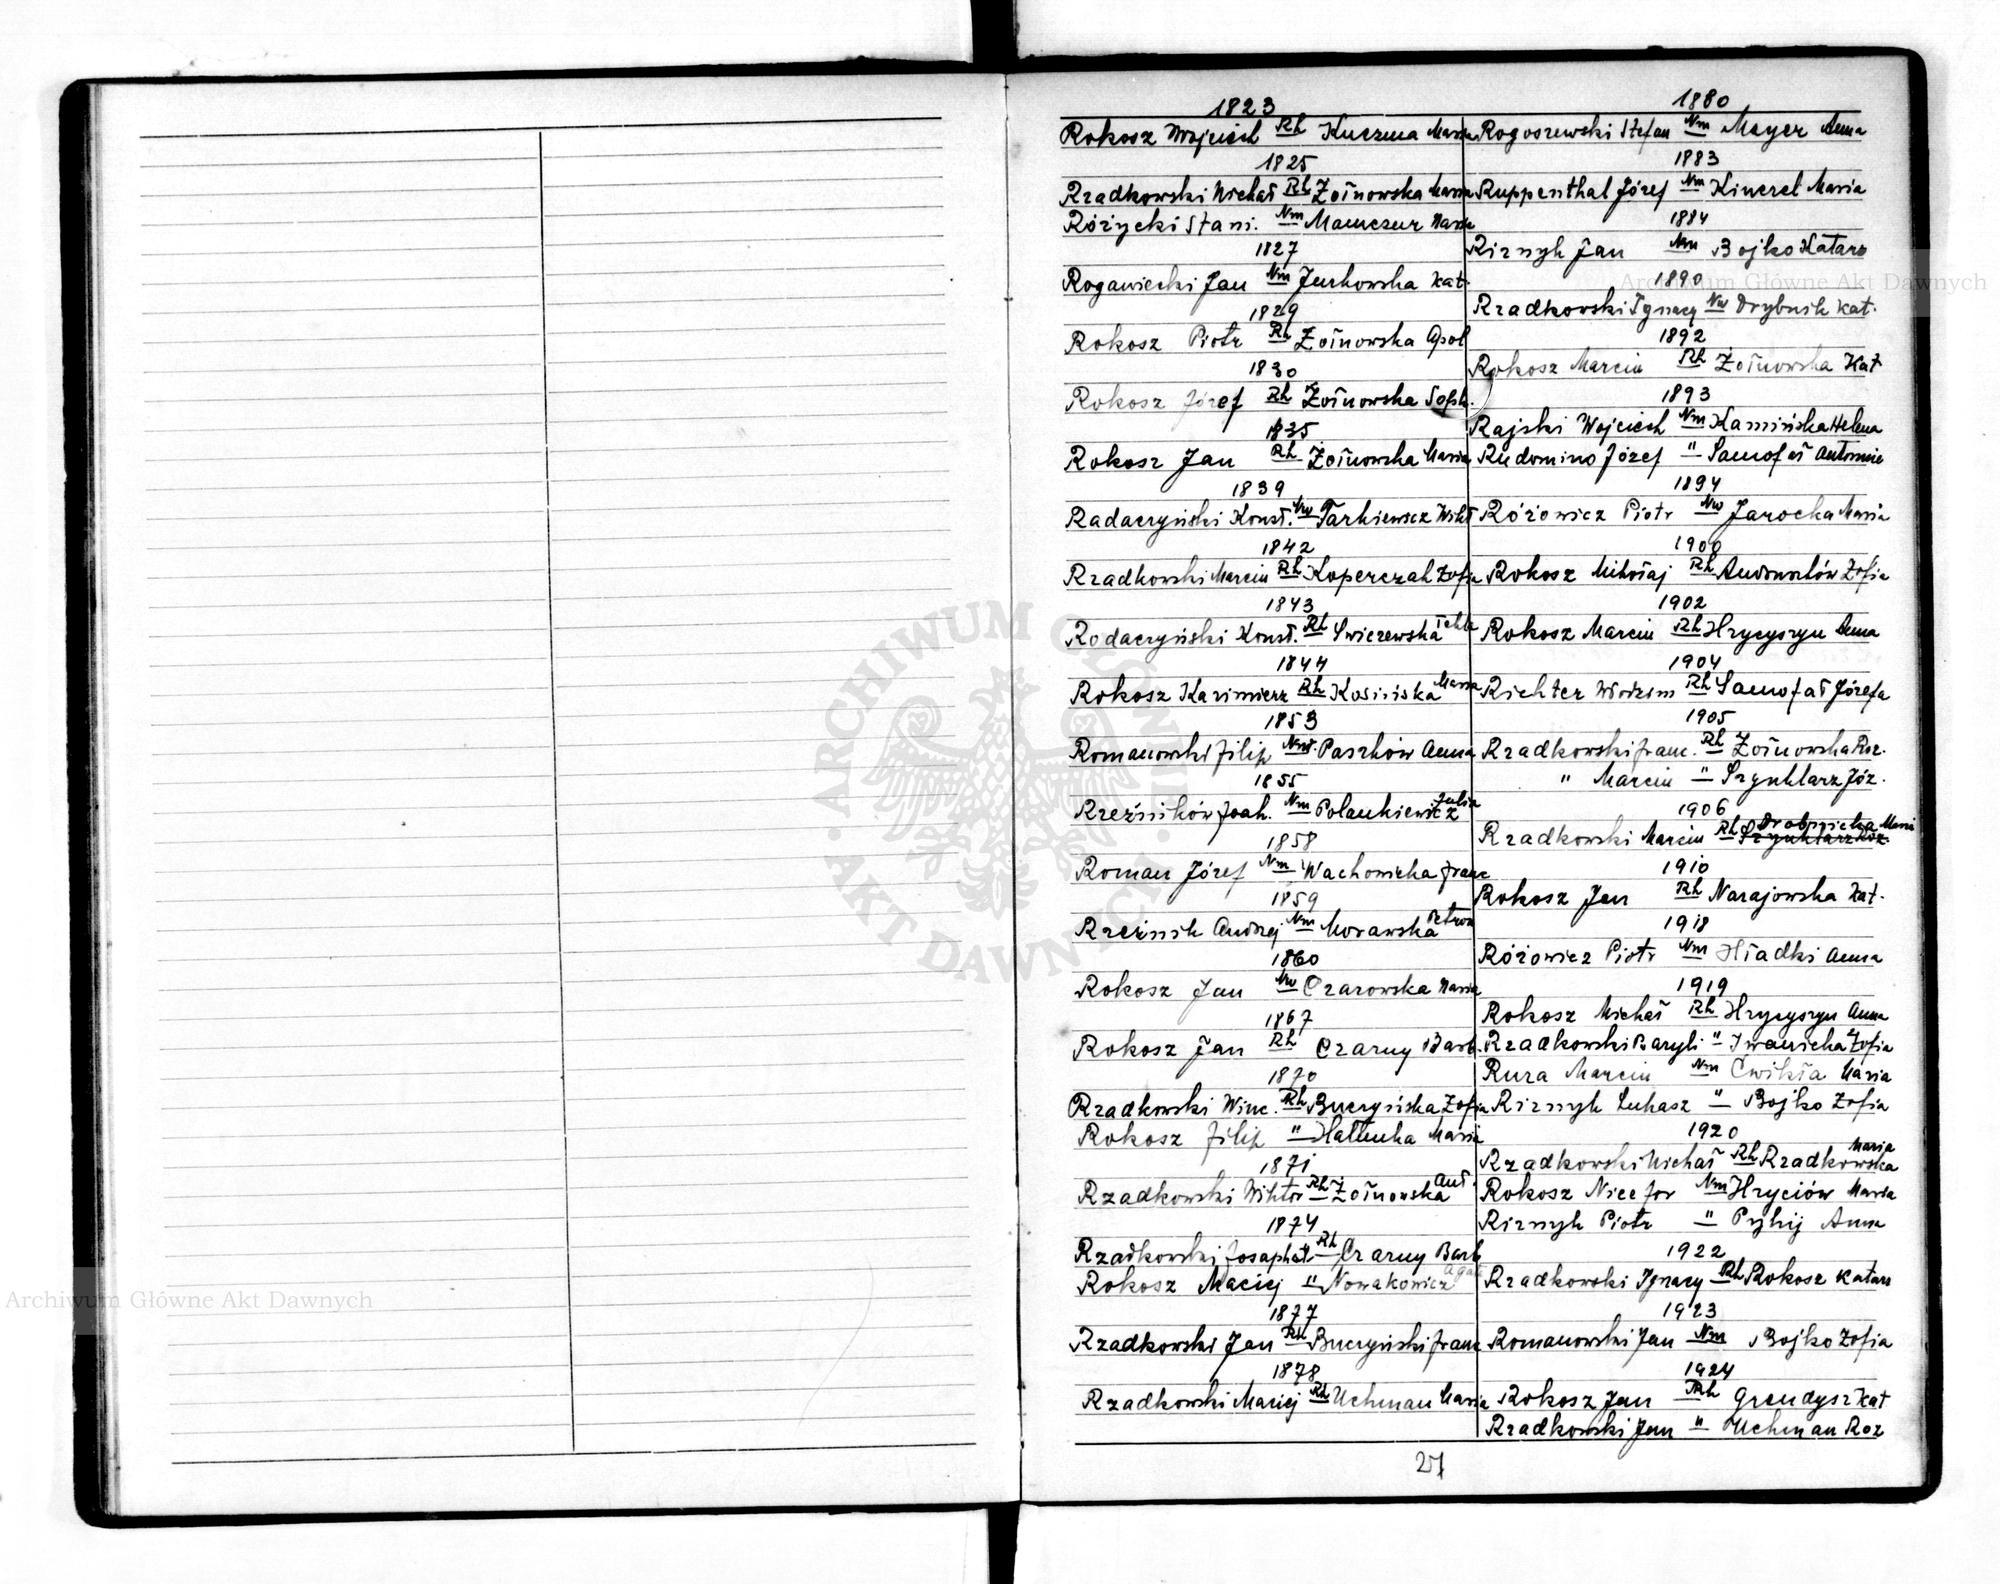 1823
Rokosz Wojciech Rh Kuczma Maria
1825
Rzadkowski Michał Rh Żołnowska Maria
Różycki Stani. Nm Mamczur Maria
1827
Rogawiecki Jan Nm Jurkowska Kat.
1829
Rokosz Piotr Rh Żołnowska Apol
1830
Rokosz Józef Rh Żołnowska
1835
Rokosz Jan Rh Żołnowska Maria
1839
Radaczyński Konst. Nw Tarkiewicz Wikt
1842
Rzadkowski Marcin Rh Koperczak Zofia
1843
Rodaczyński Konst. Rh Swiczewska Tekla
1844
Rokosz Kazimierz Rh Kosińska Maria
1853
Romanowski Filip Paszków Anna
1855
Rzeźników Joah. Nm Polankiewicz Julia
1858
Roman Józef Nm Wachowicka Franc
1859
Rzeźnik Andrzej Nm Morawska Petron
1860
Rokosz Jan Nw Czarowska Maria
1867
Rokosz Jan Rh Czarny Barb.
1870
Rzadkowski Winc. Rh Buczyńska Zofia
Rokosz Filip " Maria
1871
Rzadkowski Wiktor Rh Żołnowska Ant.
1874
Rzadkowski Josaphat Rh Czarny Barb
Rokosz Maciej " Nowakowicz Agat
1877
Rzadkowski Jan Rh Buczyński Franc
1878
Rzadkowski Maciej Rh Uchman Maria
1880
Rogoszewski Stefan Nm Meyer Anna
1883
Ruppenthal Józef Nm Kinzrel Maria
1884
Riznyk Jan Nm Bojko Katarz
1890
Rzadkowski Ignacy Nw Drybnik Kat.
1892
Rokosz Marcin Rh Żołnowska Kat
1893
Rajski Wojciech Nm Kamińska Helena
Rudomino Józef " Samofał Antonie
1894
Różowicz Piotr Nw Jarocka Maria
1900
Rokosz Mikołaj Rh Zofia
1902
Rokosz Marcin Rh Hrycyszyn Anna
1904
Richter Włodzim Rh Samofał Józefa
1905
Rzadkowski Franc. Rh Żołnowska Roz.
" Marcin " Szynklarz Józ.
1906
Rzadkowski Marcin Rh Drobnicka Mari
Szynklarz Róz
1910
Rokosz Jan Rh Narajowska Kat.
1918
Różowicz Piotr Nm Hładki Anna
1919
Rokosz Michał Rh Hrycyszyn Anna
Rzadkowski Bazyli " Iwanicka Zofia
Rura Marcin Nm Ćwikła Maria
Riznyk Łukasz " Bojko Zofia
1920
Rzadkowski Michał Rh Rzadkowska Maria
Rokosz Nicefor Nm Hryciów Maria
Riznyk Piotr " Pryhij Anna
1922
Rzadkowski Ignacy Rh Rokosz Katarz
1923
Romanowski Jan Nm Bojko Zofia
1924
Rokosz Jan Rh Grendysz Kat
Rzadkowski Jan " Uchman Roz
27
ARCHIWUM GŁÓWNE AKT DAWNYCH
Archiwum Główne Akt Dawnych
Archiwum Główne Akt Dawnych